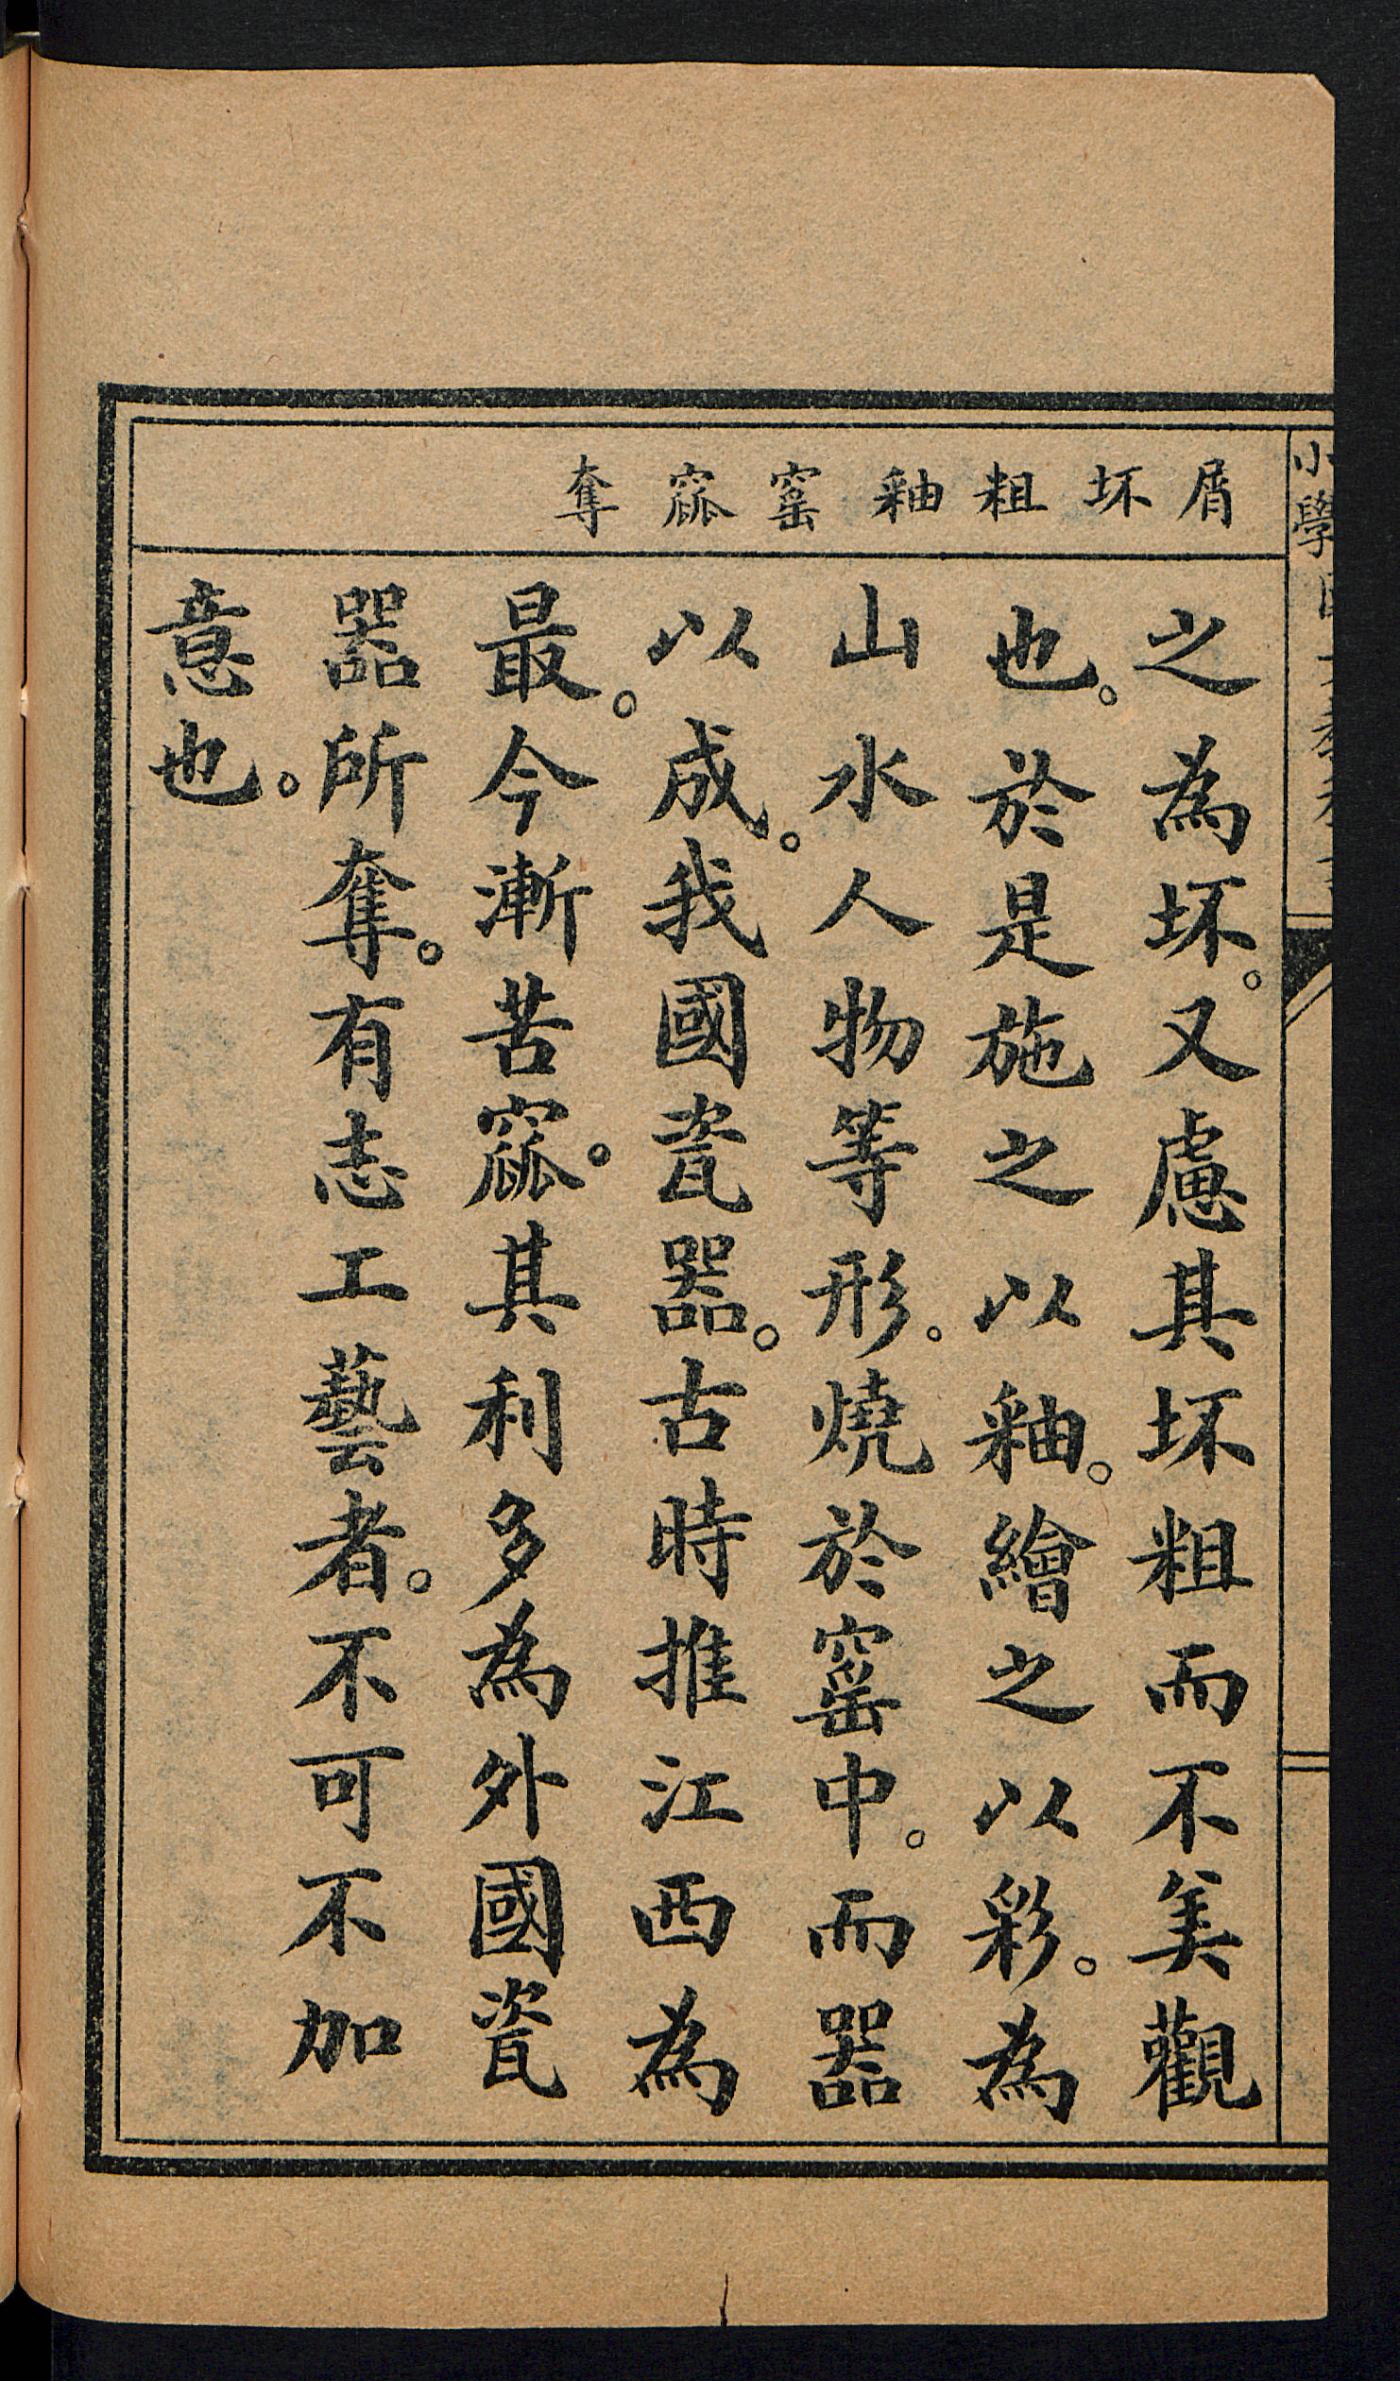 小學
屑坏粗釉窰窳奪
之為坏。又慮其坏粗而不美觀
也。於是施之以釉。繪之以彩。為
山水人物等形。燒於窰中。而器
以成。我國瓷器。古時推江西為
最。今漸苦窳。其利多為外國瓷
器所奪。有志工藝者。不可不加
意也。